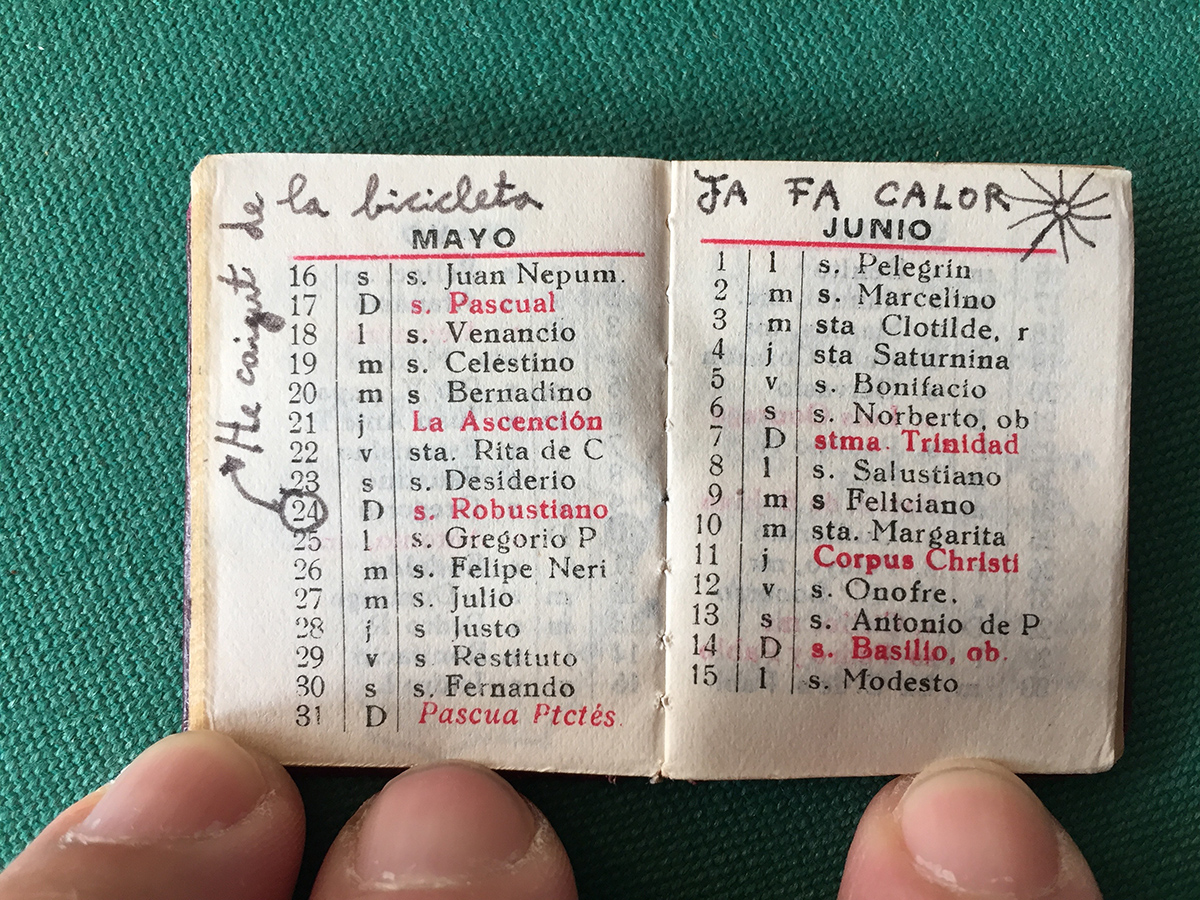 He caigut de la bicicleta
MAYO
16 s s. Juan Nepum.
17 D s. Pascual
18 l s. Venancio
19 m s. Celestino
20 m s Bernadino
21 j La Ascención
22 v sta. Rita de C
23 s s. Desiderio
24 D s. Robustiano
25 l s. Gregorio P
26 m s. Felipe Neri
27 m s. Julio
28 j s Justo
29 v s. Restituto
30 s s. Fernando
31 D Pascua Ptctés.
JA FA CALOR
JUNIO
1 l s. Pelegrin
2 m s. Marcelino
3 m sta Clotilde, r
4 j sta Saturnina
5 v s. Bonifacio
6 s s. Norberto, ob
7 D stma. Trinidad
8 l s. Salustiano
9 m s Feliciano
10 m sta. Margarita
11 j Corpus Christi
12 v s. Onofre.
13 s s. Antonio de P
14 D s. Basilio, ob.
15 l s. Modesto